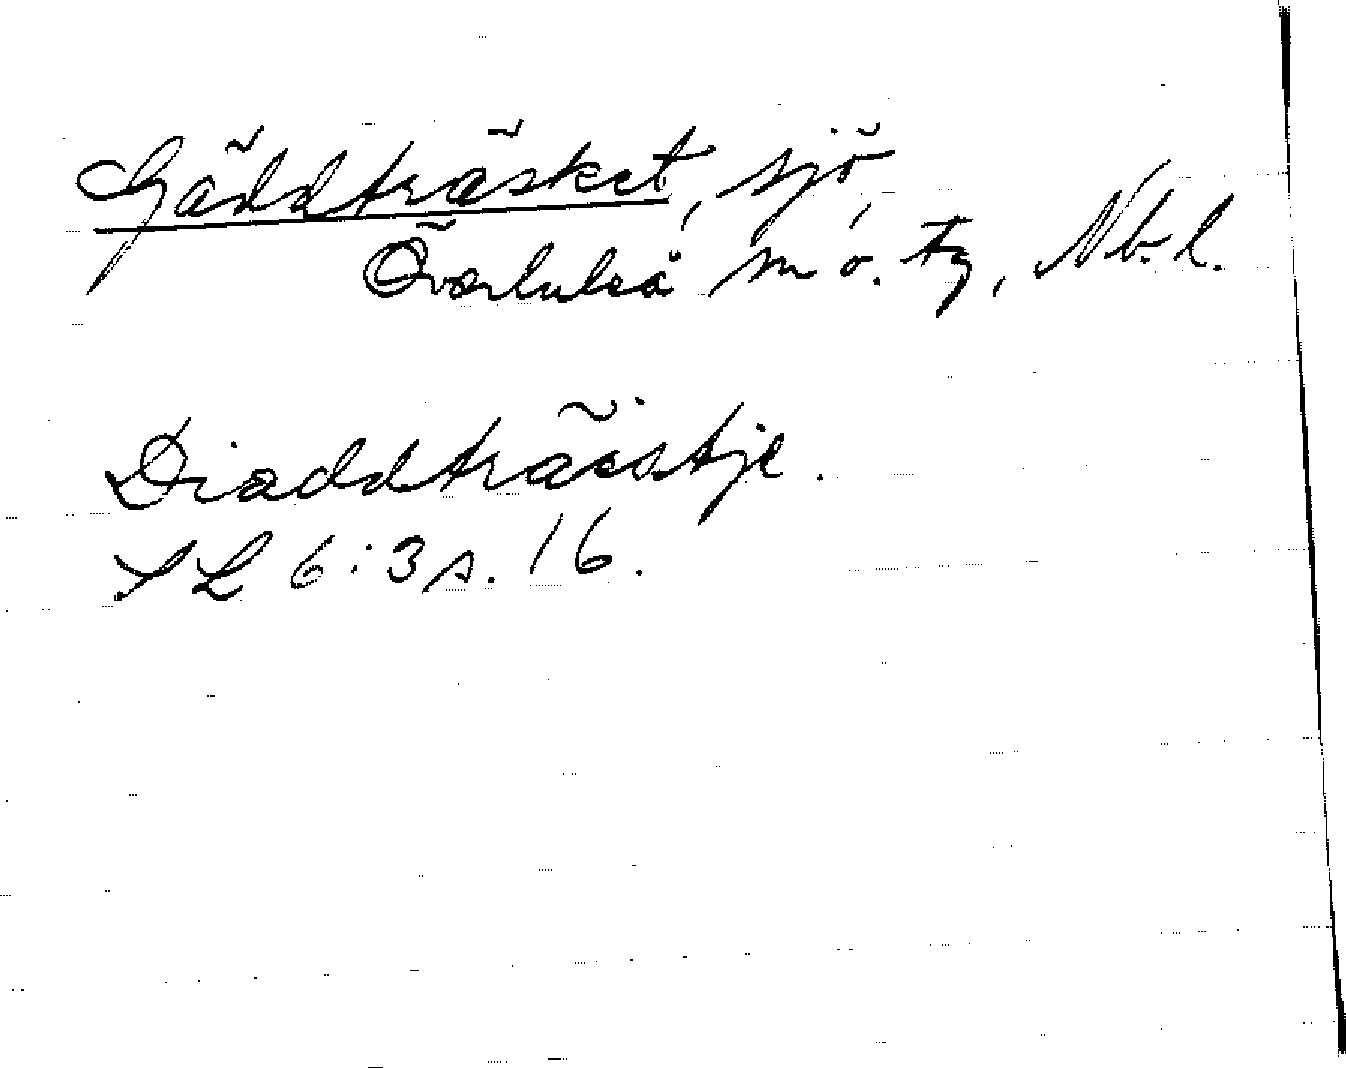 Gäddträsket, sjö,
Överluleå m o. tg, Nb. l.
Diäddträsstje.
SL 6:3 s. 16.